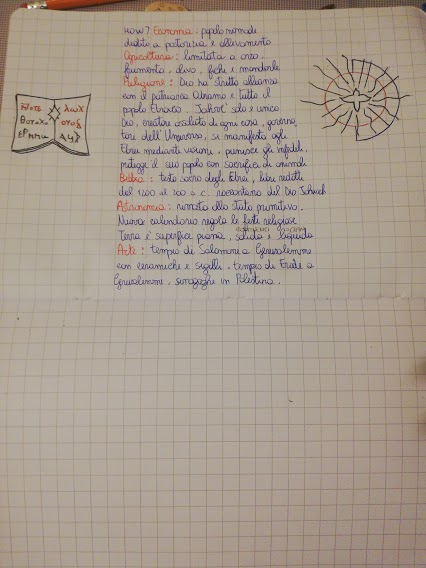 HOW? Economia: popolo nomade
dedito a pastorizia e allevamento
Agricoltura: limitata a orzo,
frumento, olivo, fichi e mandorle
Religione: Dio ha stretto alleanza
con il patriarca Abramo e tutto il
popolo Ebraico. Jahvè solo e unico
Dio, creatore assoluto di ogni cosa, governa-
tore dell'Universo, si manifesta agli
Ebrei mediante visioni, punisce gli infedeli,
protegge il suo popolo con sacrifici di animali
Bibbia: testo sacro degli Ebrei, libri redatti
dal 1200 al 100 a.C. raccontano del Dio
Astronomia: rimasta allo stato primitivo.
Nuovo calendario regola le feste religiose
Terra è superficie piana, solida e liquida
Arte: tempio di Salomone a Gerusalemme
con ceramiche e sigilli, tempio di Erode a
Gerusalemme, sinagoghe in Palestina.